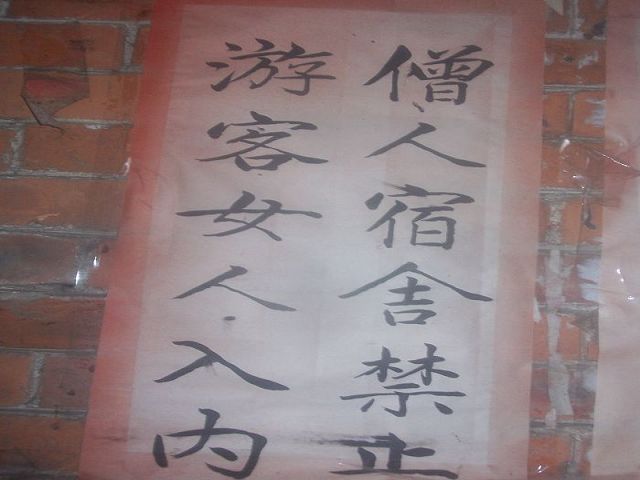 僧人宿舍禁止
游客女人入内